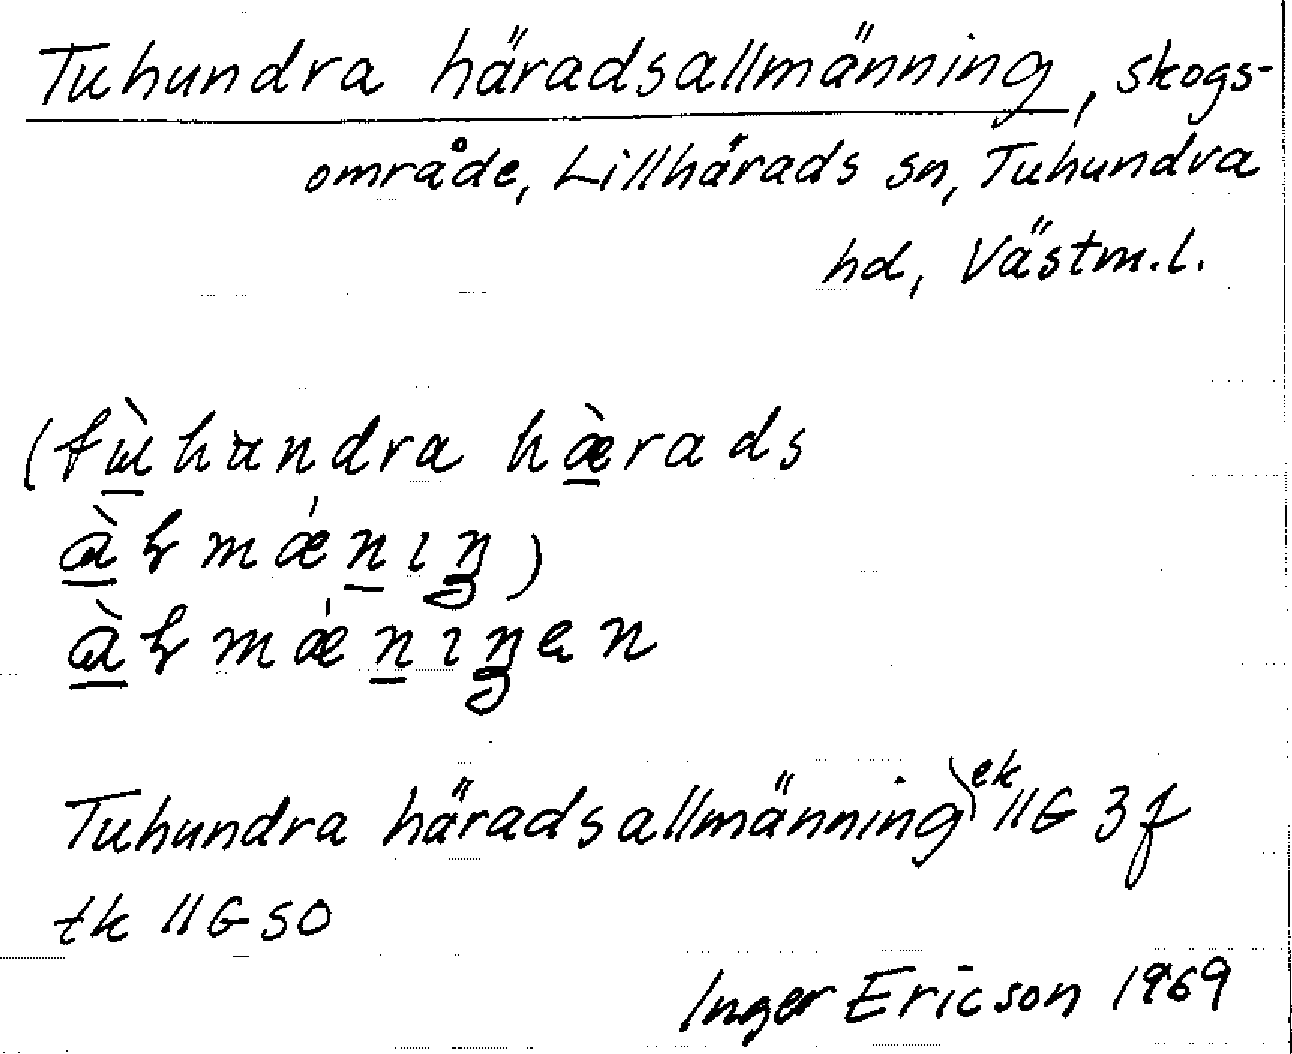 Tuhundra häradsallmänning, skogs-
område, Lillhärads sn, Tuhundra
hd, Västm.l.
(tɯ̀hundra hæ̀rads
àƚmǽnıŋ)
àƚmǽnıŋen
Tuhundra häradsallmänning ek 11G 3f
tk 11G SO
Inger Ericson 1969